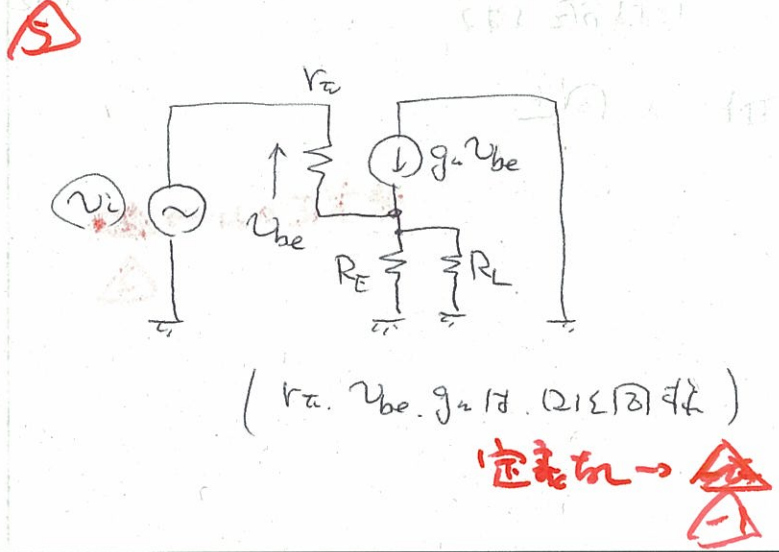 5
rπ
gm vbe
vi
vbe
RE
RL
(rπ. vbe. gmは. (2)と同様)
定義なし→
-1